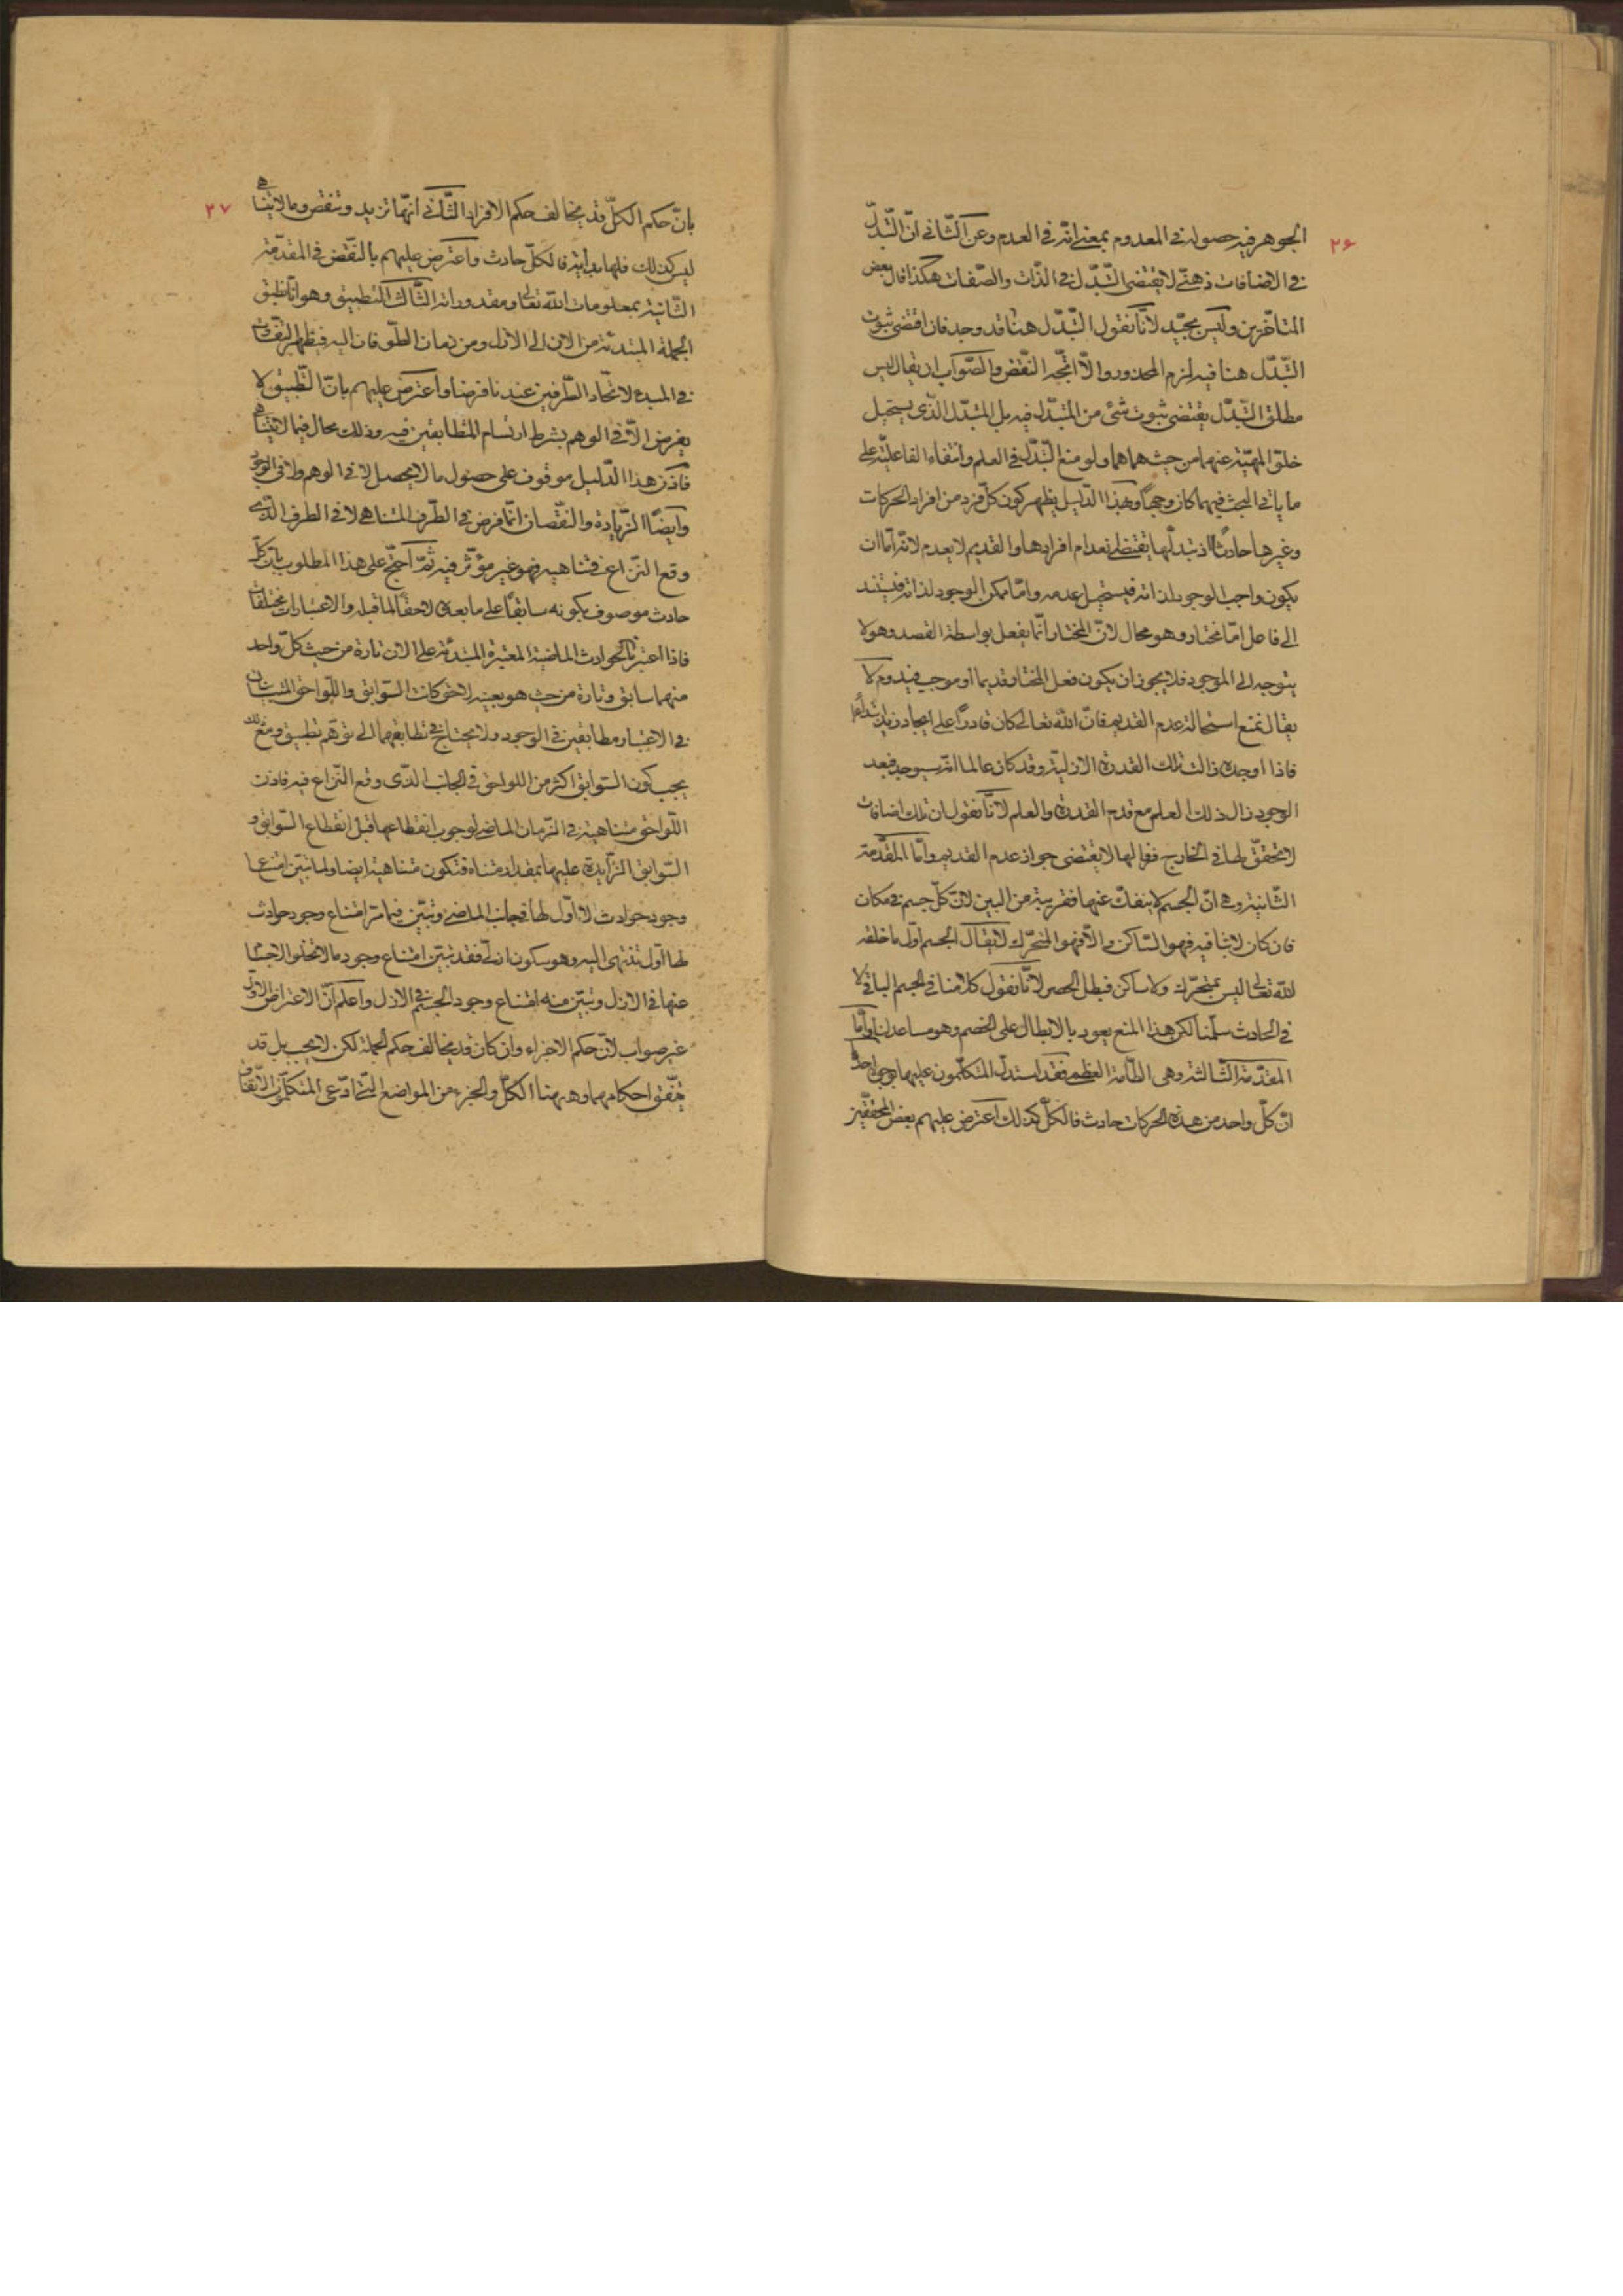 ٢۶
الجوهر فيه حصوله في المعدوم بمعنى انّه في العدم وعن الثّاني انّ التّبدّل
في الاضافات ذهنيّ لا يقتضي التّبدّل في الذّات والصّفات هكذا قال بعض
المتاخّرين وليس بجيّد لانّا نقول التّبدّل هنا قد وجد فان اقتضى ثبوت
التّبدّل هنا فيه لزم المحذور والّا اتّجه النّقض والصّواب ان يقال ليس
مطلق التّبدّل يقتضي ثبوت شئ من المتبدّل فيه بل المتبدّل الذّي يستحيل
خلوّ المهيّة عنهما من حيث هما هما ولو منع التّبدّل في العلم وانتفاء الفاعليّة على
ما ياتي البحث فيهما كان وجهاً وبهذا الدّليل يظهر كون كلّ فرد من افراد الحركات
وغيرها حادثاً اذ تبدّلها يقتضي انعدام افرادها والقديم لا يعدم لانّه امّا ان
يكون واجب الوجود لذاته فيستحيل عدمه وامّا ممكن الوجود لذاته فيستند
الى فاعل امّا مختار وهو محال لانّ المختار انّما يفعل بواسطة القصد وهو لا
يتوجه الى الموجود فلا يجوز ان يكون فعل المختار قديما او موجب فيدوم لا
يقال نمنع استحالة عدم القديم فانّ الله تعالى كان قادراً على ايجاد زيد ابتداءً
فاذا اوجده زالت تلك القدرة الازليّة وقد كان عالما انّه سيوجد فبعد
الوجود زال ذلك العلم مع قدم القدرة والعلم لانّا نقول ان تلك اضافات
لا تحقّق لها في الخارج فزوالها لا يقتضي جواز عدم القديم وامّا المقدّمة
الثّانية وهي انّ الجسم لا ينفكّ عنها فقريبة من البين لانّ كلّ جسم في مكان
فان كان لابثا فيه فهو السّاكن والّا فهو المتحرّك لا يقال الجسم اوّل ما خلقه
الله تعالى ليس بمتحرّك ولا ساكن فبطل الحصر لانّا نقول كلامنا في الجسم الباقي لا
في الحادث سلّمنا لكن هذا المنع يعود بالابطال على الخصم وهو مساعد لنا وامّا
المقدّمة الثّالثة وهي الطّامة العظمى فقد استدلّ المتكلّمون عليها بوجوه احدها
انّ كلّ واحد من هذه الحركات حادث فالكلّ كذلك اعترض عليهم بعض المحقّقين
٢٧
بانّ حكم الكلّ قد يخالف حكم الافراد الثّاني انّها تزيد وتنقص وما لا يتناهى
ليس كذلك فلها بداية فالكلّ حادث واعترض عليهم بالنّقض في المقدّمة
الثّانية بمعلومات الله تعالى ومقدوراته الثّالث التّطبيق وهو انّا نطبق
الجملة المبتدئة من الان الى الازل ومن زمان الطّوفان اليه فيظهر التّفاوت
في المبدء لاتّحاد الطّرفين عندنا فرضا واعترض عليهم بانّ التّطبيق لا
يفرض الّا في الوهم بشرط ارتسام المتطابقين فيه وذلك محال فيما لا يتناهى
فاذن هذا الدّليل موقوف على حصول ما لا يحصل لا في الوهم ولا في الوجود
وايضًا الزّيادة والنّقصان انّما فرض في الطّرف المتناهي لا في الطرف الذّي
وقع النّزاع في تناهيه فهو غير مؤثّر فيه ثمّ احتجّ على هذا المطلوب بانّ كلّ
حادث موصوف بكونه سابقًا على ما بعده لاحقًا لما قبله والاعتباران مختلفان
فاذا اعتبرنا الحوادث الماضية المعتبرة المبتدئة على الان تارة من حيث كلّ واحد
منهما سابق وتارة من حيث هو بعينه لاحق كانت السّوابق واللّواحق المتباينان
في الاعتبار مطابقين في الوجود ولا يحتاج في تطابقهما الى توهّم تطبيق ومع ذلك
يجب كون السّوابق اكثر من اللواحق في الجانب الذّي وقع النّزاع فيه فاذن
اللّواحق متناهية في الزّمان الماضي لوجوب انقطاعها قبل انقطاع السّوابق و
السّوابق الزّايدة عليها بمقدار متناه فتكون متناهية ايضا ولما تبيّن امتناع
وجود حوادث لا اوّل لها في جانب الماضي وتبيّن فيما مرّ امتناع وجود حوادث
لها اوّل تنتهي اليه وهو سكون ازليّ فقد تبيّن امتناع وجود ما لا تخلو الاجسام
عنها في الازل وتبيّن منه امتناع وجود الجسم في الازل واعلم انّ الاعتراض الاوّل
غير صواب لانّ حكم الاجزاء وان كان قد يخالف حكم الجملة لكن لا يجب بل قد
يتّفق احكامهما وههنا الكلّ والجزء من المواضع الّتي ادّعى المتكلّمون الاتّفاق